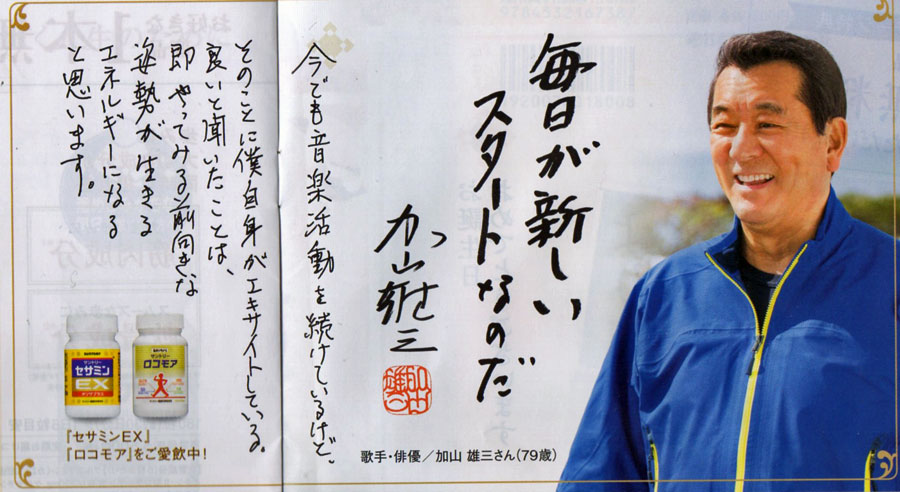 毎日が新しい
スタートなのだ
加山雄三
今でも音楽活動を続けているけど、
そのことに僕自身がエキサイトしている。
良いと聞いたことは、
即やってみる前向きな
姿勢が生きる
エネルギーになる
と思います。
歌手・俳優／加山 雄三さん(79歳)
サントリー
セサミン
EX
サントリー
ロコモア
『セサミンEX』
『ロコモア』をご愛飲中!